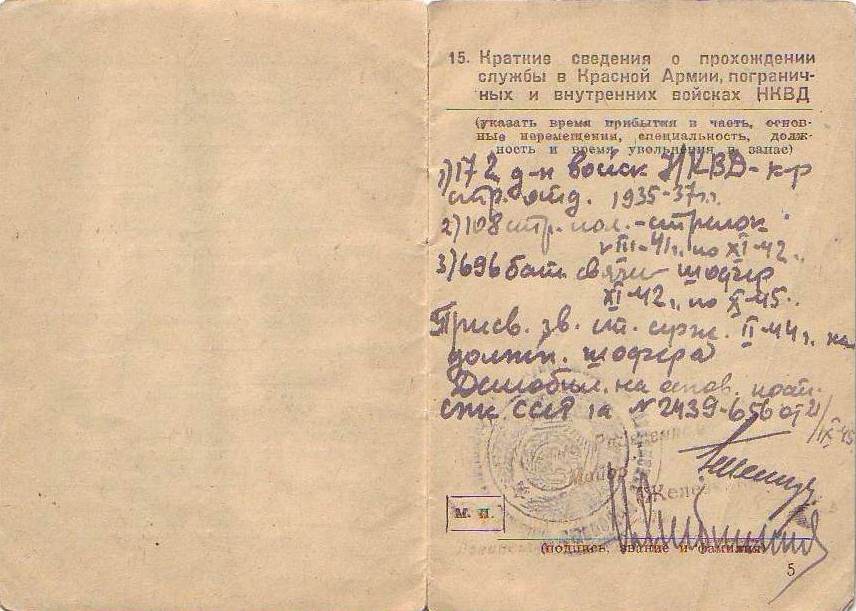 15. Краткие сведения о прохождении
службы в Красной Армии, погранич-
ных и внутренних войсках НКВД
(указать время прибытия в часть, основ-
ные перемещения, специальность, долж-
ность и время увольнения в запас)
1) 172 д-н войск НКВД - к-р
стр. отд. 1935-37 г.г.
2) 108 стр. пол. - стрелок
VIII-41 г. по XI-42 г.
3) 696 бат. связи шофер
XI-42 г. по X-45 г.
Присв. зв. ст. серж. II-44 г. на
должн. шофера
Демобил. на основ.
№ 2439-656 от 21/
IX-45
Майор
Желез
М. П.
(подпись, звание и фамилия)
5